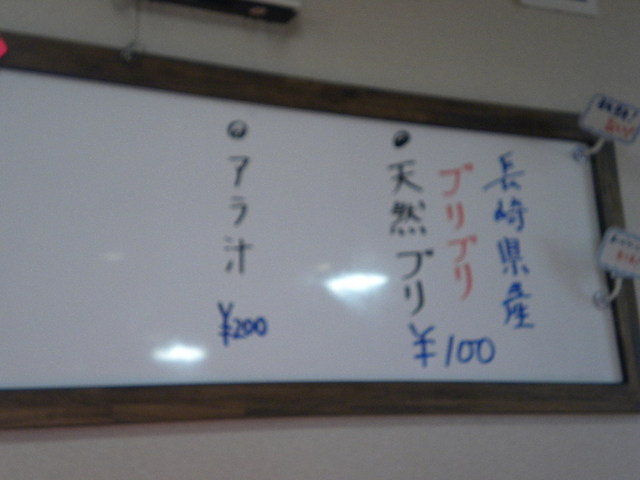 長崎県産
プリプリ
●天然ブリ
¥100
●アラ汁
¥200